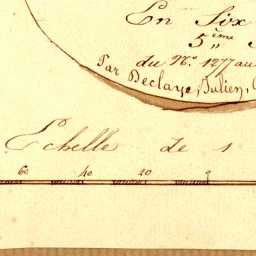 En Six
5 ème
du N° 1277 au
Par Declaye, Julien,
Echelle de 1
60 40 20 0